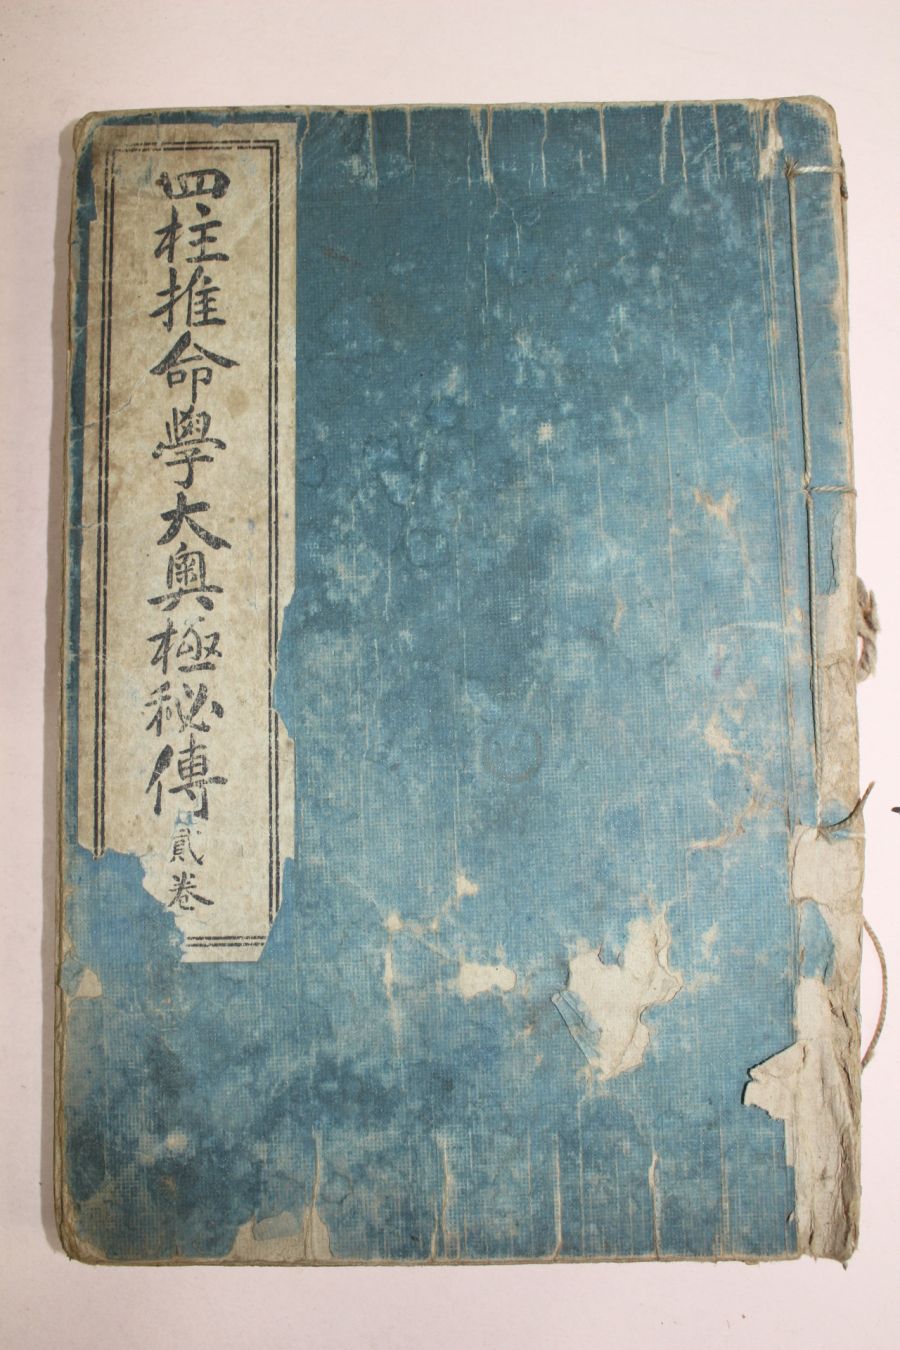 四柱推命學大奧極秘傳
貳卷